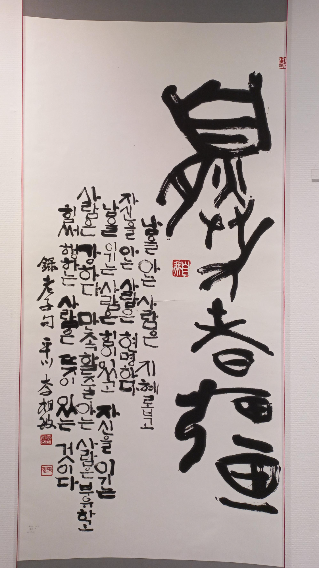 自勝者强
남을 아는 사람은 지혜롭고
자신을 아는 사람은 현명하다
남을 이기는 사람은 힘이 있고 자신을 이기는
사람은 강하다 만족할줄 아는 사람은 부유하고
힘써 행하는 사람은 뜻이 있는 것이다
錄老子句 平川 李相敏